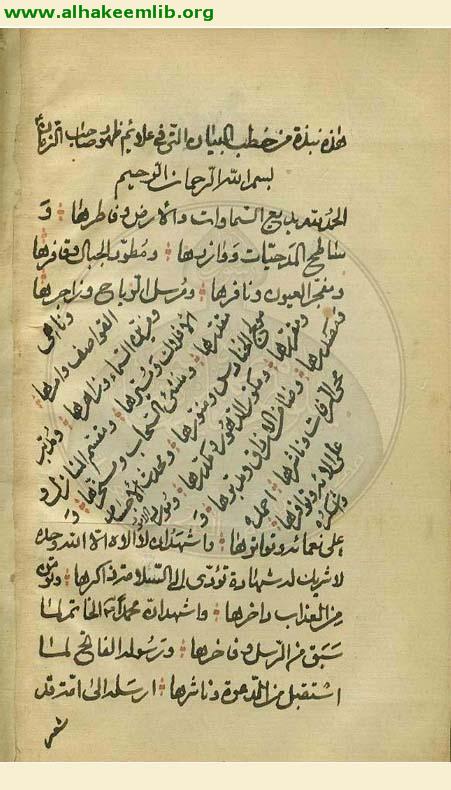 www.alhakeemlib.org
هذه نبذة من خطب البيان التي في علائم ظهور صاحب الزمان
بسم الله الرحمان الرحيم
الحمد لله بديع السماوات والارض وفاطرها و
ساطح المدحيات ووازرها ومطود الجبال وقافرها
ومفجر العيون ونافرها ومرسل الرياح وزاجرها
وناهي القواصف وآمرها
ومزين السماء وزاهرها ومدبر
الافلاك ومسيرها ومقسم المنازل و
مقدرها ومنشئ السحاب ومسخرها و
مولج الحنادس ومنورها ومحدث الاجسام
ومقررها ومكور الدهور ومكدرها ومورد الامور
ومصدرها وضامن الارزاق ومدبرها و
محيي الرفات وناشرها احمده
على الائه وتوافرها
واشكره
على نعمائه وتواترها واشهد ان لا اله الا الله وحده
لا شريك له شهادة تؤدي الى السلامة ذاكرها وتؤمن
من العذاب داخرها واشهد ان محمدا الخاتم لما
سبق من الرسل وفاخرها ورسوله الفاتح لما
استقبل من الدعوة وناشرها ارسله الى امة قد
شعر